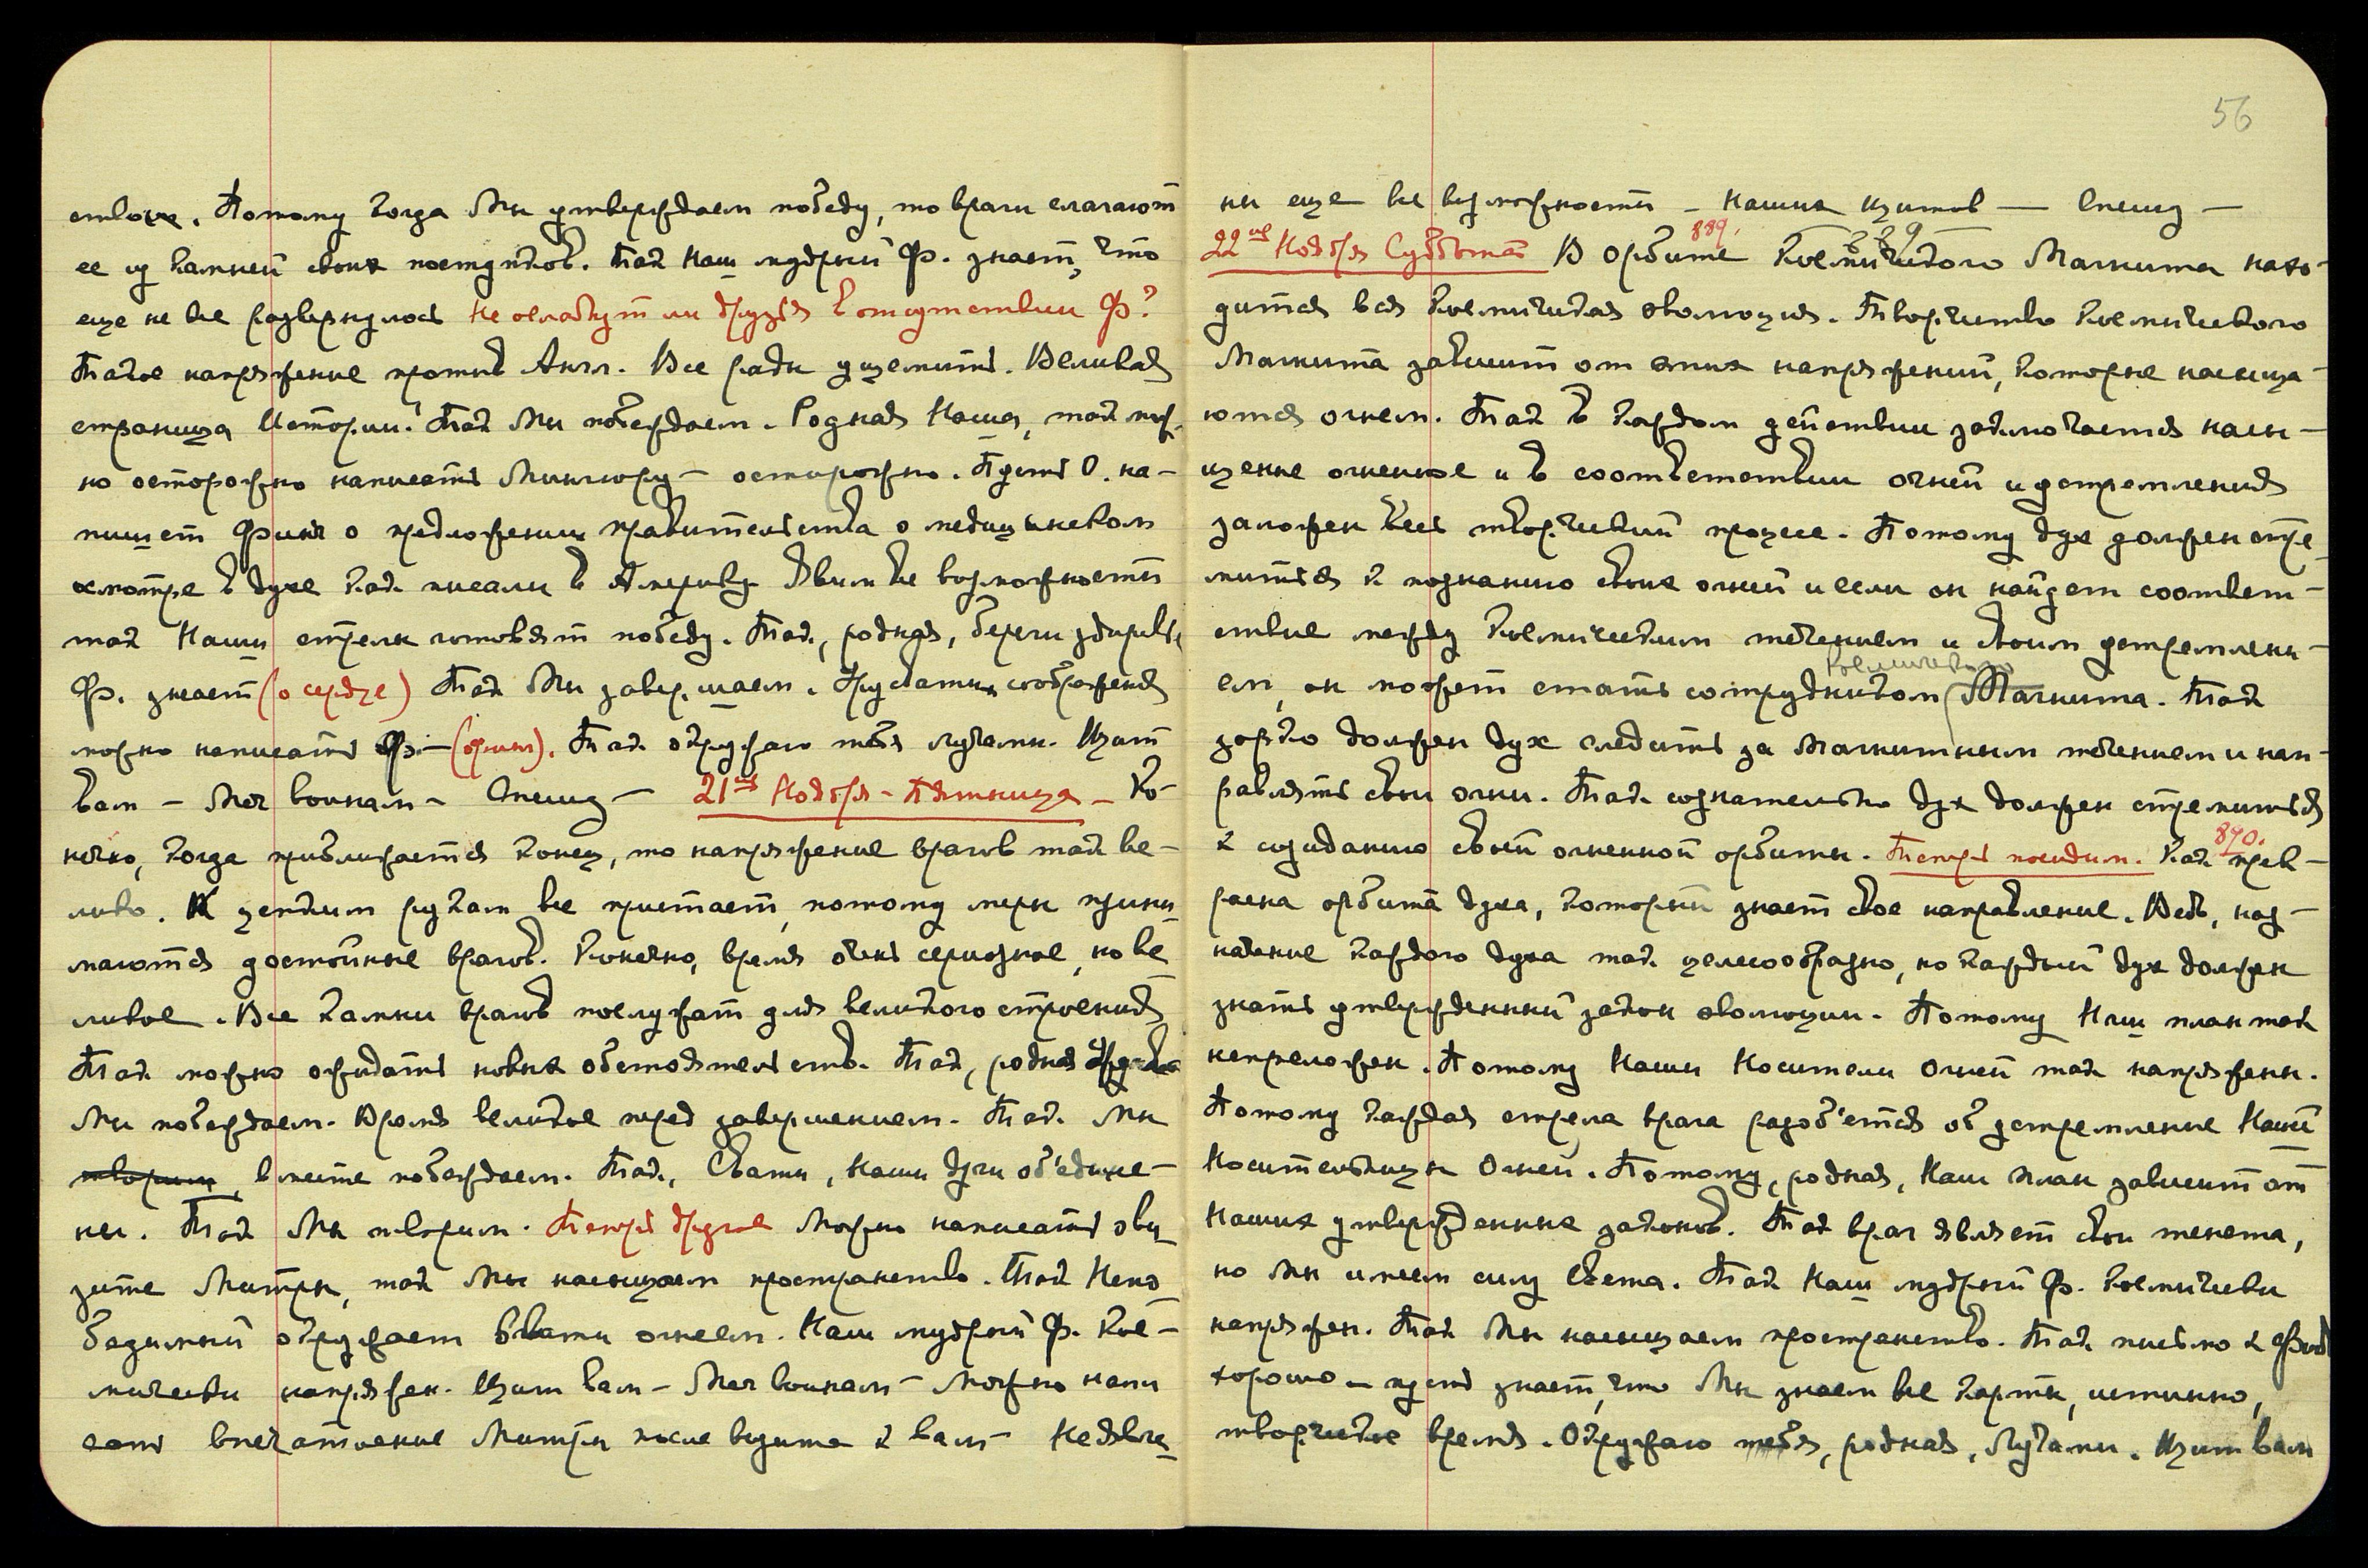 ством. Потому когда Мы утверждаем победу, то враги слагают
ее из камней своих поступков. Так Наш мудрый Ф. знает, что
еще не все развернулось Не ослабнут ли друзья в отсутствии Ф?
Такое напряжение против Англ. Все рады ущемить. Великая
страница Истории! Так Мы побеждаем. Родная Наша, так нуж-
но осторожно написать – осторожно. Пусть О. на-
пишет о предложении правительства о медицинском
осмотре в духе как писали в Америку. Явим все возможности
так Наши стрелы готовят победу. Так, родная, береги здоровье,
Ф. знает (о сердце) Так Мы завершаем. соображения
можно написать Так окружаю тебя лучами. Щит
вам – Меч воинам – Спешу – 21ое Ноября – Пятница – Ко-
нечно, когда приближается конец, то напряжение врагов так ве-
лико. К цепким рукам все пристает, потому меры прини-
маются достойные врагов. Конечно, время очень серьезное, но ве
ликое. Все камни врагов послужат для великого строения
Так можно ожидать новых обстоятельств. Так, родная
Мы побеждаем. Время великое перед завершением. Так Мы
творим, вместе побеждаем. Так, Свати, Наши духи об'едине-
ны. Так Мы творим. Теперь другое Можно написать о ви
зите Митры, так Мы насыщаем пространство. Так Нено
бедимый окружает Свати огнем. Наш мудрый Ф. кос-
мически напряжен. Щит вам – Меч воинам – Можно напи
сать впечатление Митры после визита к вам – Не явле
56
ны еще все возможности – Наших щитов – Спешу –
22ое Ноября Суббота 889. В орбите Космического Магнита нахо-
дится вся космическая эволюция. Творчество Космического
Магнита зависит от этих напряжений, которые насыща-
ются огнем. Так в каждом действии заключается насы-
щение огненное и в соответствии огней и устремления
заложен весь творческий процесс. Потому дух должен стре
миться к познанию своих огней и если он найдет соответ-
ствие между космическим течением и своим устремлени-
ем, он может стать сотрудником Космического Магнита. Так
зорко должен дух следить за Магнитным течением и нап-
равлять свои огни. Так сознательно дух должен стремиться
к созиданию своей огненной орбиты. Теперь посидим. 890. Как прек-
расна орбита духа, который знает свое направление. Ведь, наз-
начение каждого духа так целесообразно, но каждый дух должен
знать утвержденный закон эволюции. Потому Наш план так
непреложен. Потому Наши Носители Огней так напряжены.
Потому каждая стрела врага разоб'ется об устремление Нашей
Носительницы Огней. Потому, родная, Наш план зависит от
Наших утвержденных законов. Так враг являет свои тенета,
но Мы имеем силу Света. Так Наш мудрый Ф. космически
напряжен. Так Мы насыщаем пространство. Так письмо к
хорошо – пусть знает, что Мы знаем все карты, истинно,
творческое время. Окружаю тебя, родная, Лучами. Щит вам